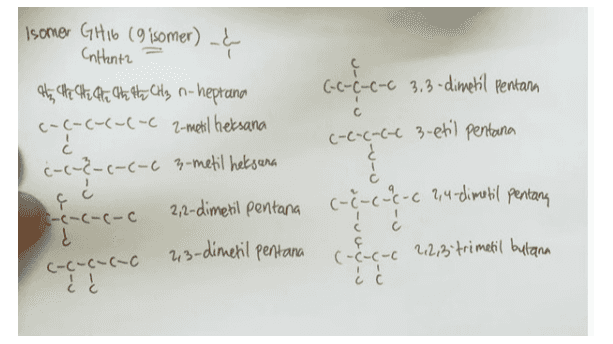 Isomer C7H16 (9 isomer)
CnH2n+2
CH3 CH2 CH2 CH2 CH2 CH2 CH3 n-heptana
C-C-C-C-C-C 2-metil heksana
C
C-C-C-C-C-C 3-metil heksana
C
C
C-C-C-C-C 2,2-dimetil pentana
C
C-C-C-C-C 2,3-dimetil pentana
C C
C
C-C-C-C-C 3,3-dimetil pentana
C
C-C-C-C-C 3-etil pentana
C
C
C-C-C-C-C 2,4-dimetil pentana
C C
C
C-C-C-C 2,2,3-trimetil butana
C C